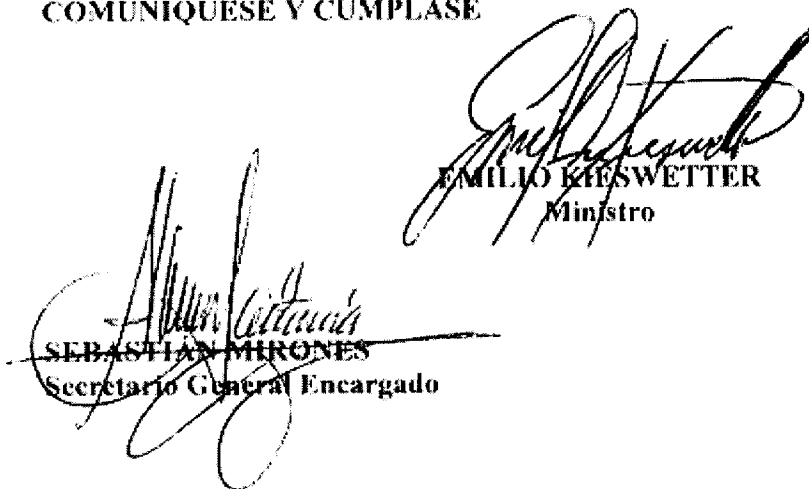 COMUNÍQUESE Y CÚMPLASE
EMILIO KIESWETTER
Ministro
SEBASTIÁN MIRONES
Secretario General Encargado